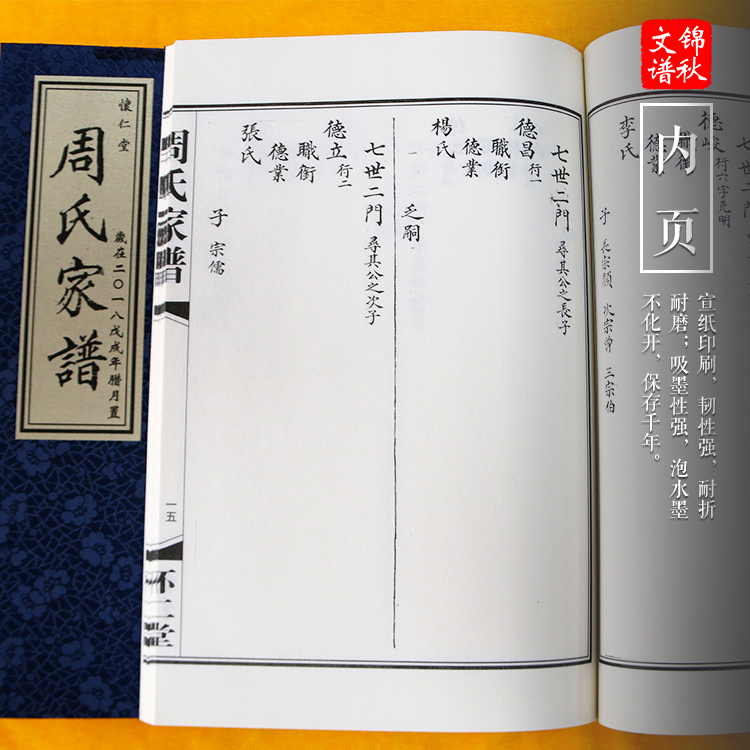 懷仁堂
周氏家譜
歲在二〇一八戊戌年腊月置
锦秋
文谱
内页
宣纸印刷,韧性强,耐折
耐磨;吸墨性强,泡水墨
不化开,保存千年。
德峻行六字克明
職銜
德業
李氏
子 長宗頎 次宗曾 三宗伯
七世二門 尋其公之長子
德昌行一
職銜
德業
楊氏
乏嗣
七世二門 尋其公之次子
德立行二
職銜
德業
張氏
子 宗儒
周氏家譜
一五
怀仁堂